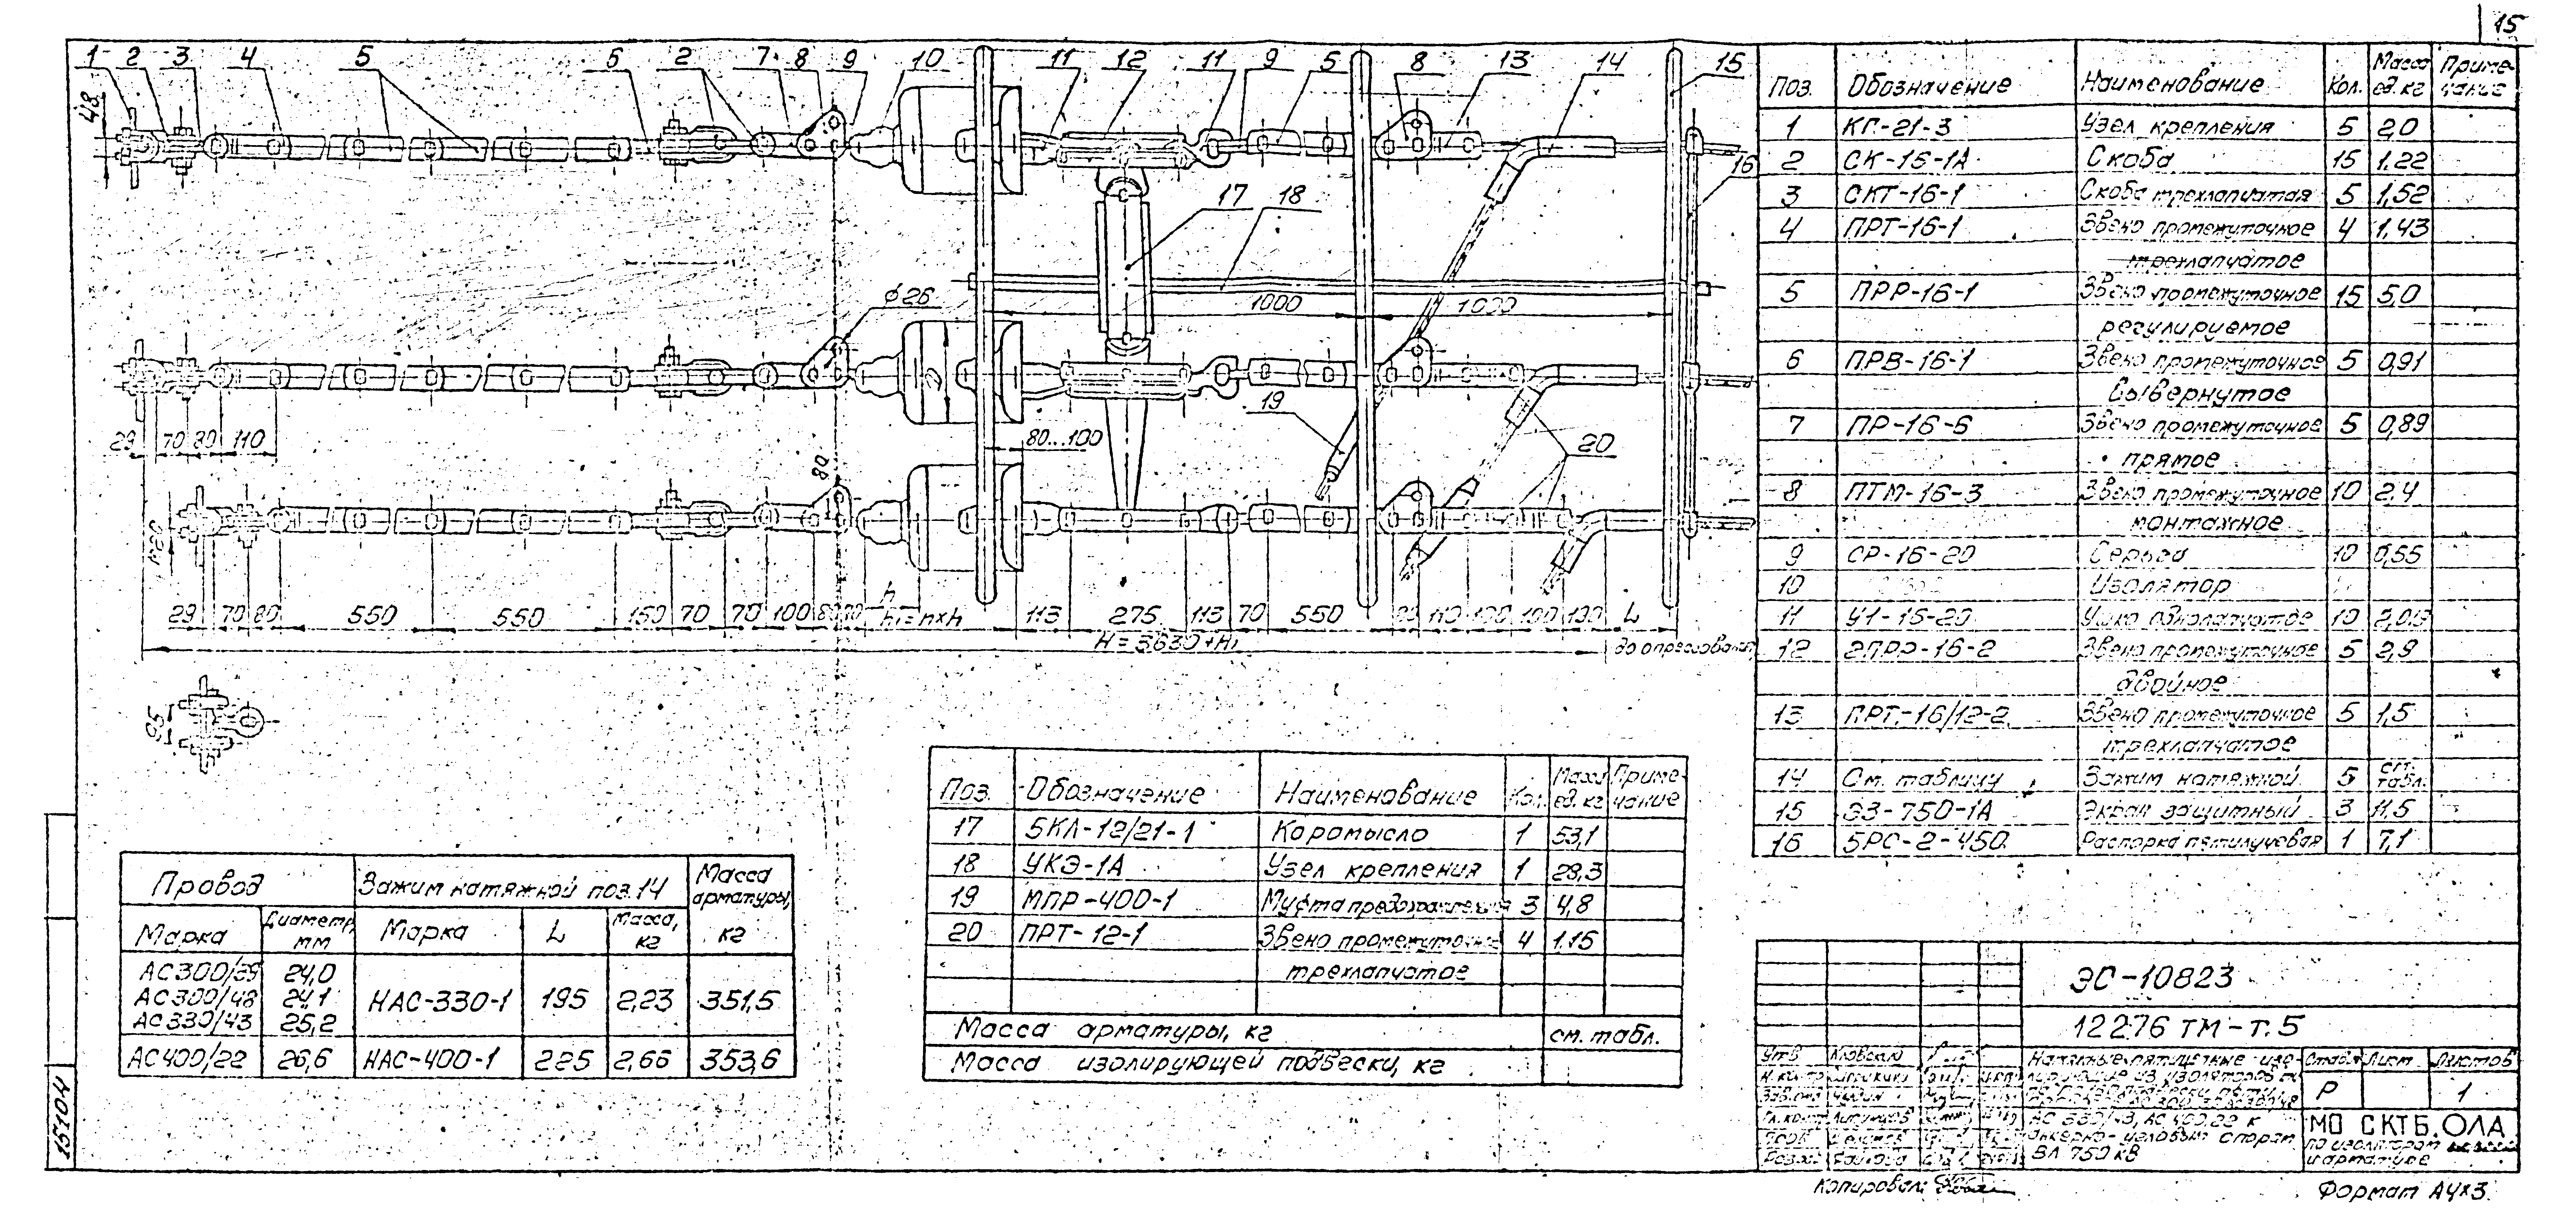 15
1 2 3 4 5 6 2 7 8 9 10 11 12 11 9 5 8 13 14 15
48
16
17 18
⌀26
1000 1000
19
20
29 70 80 110
80...100
80
29 70 80 550 550 150 70 70 100
h
H₁=n×h
113 275 113 70 550
110 100 100 100 L
H=5630+H₁
до опрессования
65
Поз. Обозначение Наименование Кол. Масса ед. кг Примечание
1 КГ-21-3 Узел крепления 5 2,0
2 СК-16-1А Скоба 15 1.22
3 СКТ-16-1 Скоба трехлапчатая 5 1,52
4 ПРТ-16-1 Звено промежуточное 4 1,43
трехлапчатое
5 ПРР-16-1 Звено промежуточное 15 5,0
регулируемое
6 ПРВ-16-1 Звено промежуточное 5 0,91
вывернутое
7 ПР-16-6 Звено промежуточное 5 0,89
прямое
8 ПТМ-16-3 Звено промежуточное 10 2.4
монтажное
9 СР-16-20 Серьга 10 0,55
10 Изолятор
11 У1-16-20 Ушко однолапчатое 10
12 2ПРР-16-2 Звено промежуточное 5 2,9
двойное
13 ПРТ-16/12-2 Звено промежуточное 5 1,5
трехлапчатое
14 См. таблицу Зажим натяжной 5 см. табл.
15 ЭЗ-750-1А Экран защитный 3 11,5
16 5РС-2-450 Распорка пятилучевая 1 7,1
Поз. Обозначение Наименование Кол. Масса ед. кг Примечание
17 5КЛ-12/21-1 Коромысло 1 53,1
18 УКЭ-1А Узел крепления 1 29,3
19 МПР-400-1 Муфта предохранительная 3 4,8
20 ПРТ-12-1 Звено промежуточное 4 1.15
трехлапчатое
Масса арматуры, кг см. табл.
Масса изолирующей подвески, кг
Провод Зажим натяжной поз.14 Масса арматуры, кг
Марка Диаметр, мм Марка L Масса, кг
АС300/39 24,0
АС300/48 24,1 НАС-330-1 195 2,23 351,5
АС330/43 25,2
АС400/22 26,6 НАС-400-1 225 2,66 353,6
15104
ЭС-10823
12276 тм-т.5
Натяжные пятицепные изо-
лирующие из изоляторов
АС 330/43, АС 400/22 к
анкерно-угловым опорам
ВЛ 750 кВ
Утв.
Н.контр
Разраб
Стадия Лист Листов
Р 1
МО СКТБ, ОЛА
по изоляторам
и арматуре
Копировал:
Формат А4×3